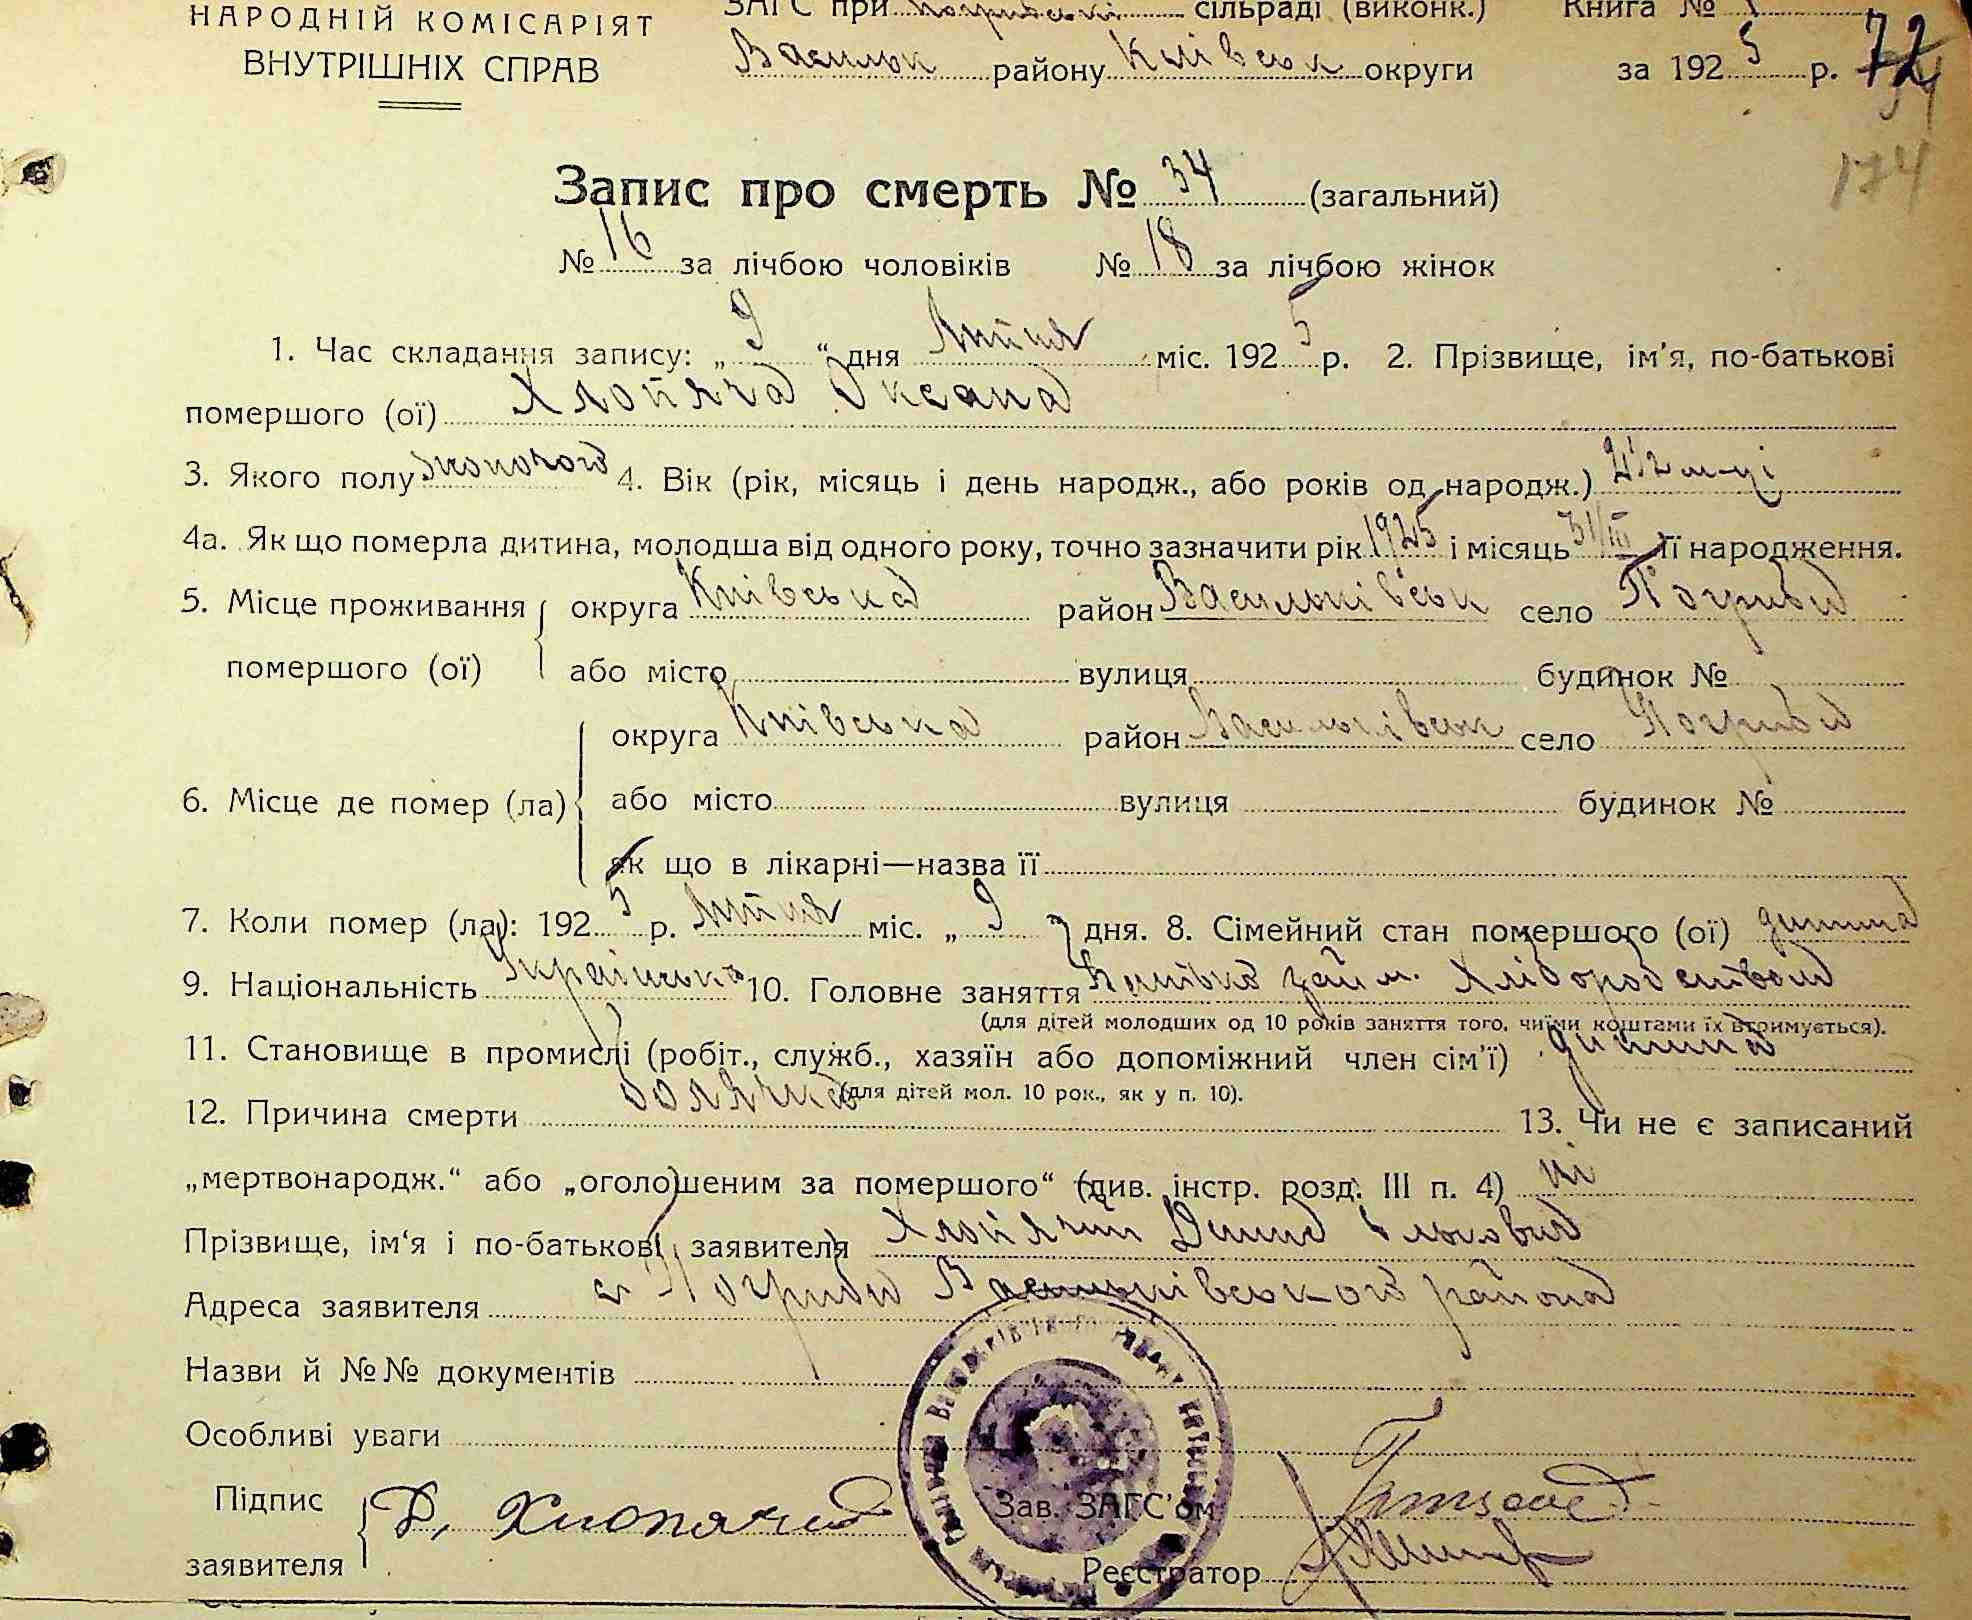 НАРОДНІЙ КОМІСАРІЯТ
ВНУТРІШНІХ СПРАВ
ЗАГС при сільраді (виконк.)
Васильк району Київськ округи
Книга №
за 1925 р. 72
174
Запис про смерть № 34 (загальний)
№ 16 за лічбою чоловіків № 18 за лічбою жінок
1. Час складання запису: „ 9 “ дня Липня міс. 1925 р. 2. Прізвище, ім'я, по-батькові
помершого (ої) Хлопяча Оксана
3. Якого полу жопочого 4. Вік (рік, місяць і день народж., або років од народж.) 2 1/2 м-ці
4а. Як що померла дитина, молодша від одного року, точно зазначити рік 1925 і місяць 31/III її народження.
5. Місце проживання округа Київська район Васильківськ село Погриби
помершого (ої) або місто вулиця будинок №
округа Київська район Васильківськ село Погриби
6. Місце де помер (ла) або місто вулиця будинок №
як що в лікарні—назва її
7. Коли помер (ла): 1925 р. Липня міс. „ 9 дня. 8. Сімейний стан помершого (ої) дитина
9. Національність Українська 10. Головне заняття Батько займ. Хліборобством
(для дітей молодших од 10 років заняття того, чиїми коштами їх втримується).
11. Становище в промислі (робіт., служб., хазяїн або допоміжний член сім'ї) дитина
(для дітей мол. 10 рок., як у п. 10).
12. Причина смерти болячка 13. Чи не є записаний
„мертвонародж.“ або „оголошеним за помершого“ (див. інстр. розд. III п. 4) ні
Прізвище, ім'я і по-батькові заявителя Хлопячий
Адреса заявителя с Погриби Васильківського района
Назви й №№ документів
Особливі уваги
Підпис Д. Хлопячий Зав. ЗАГС'ом
заявителя Реєстратор